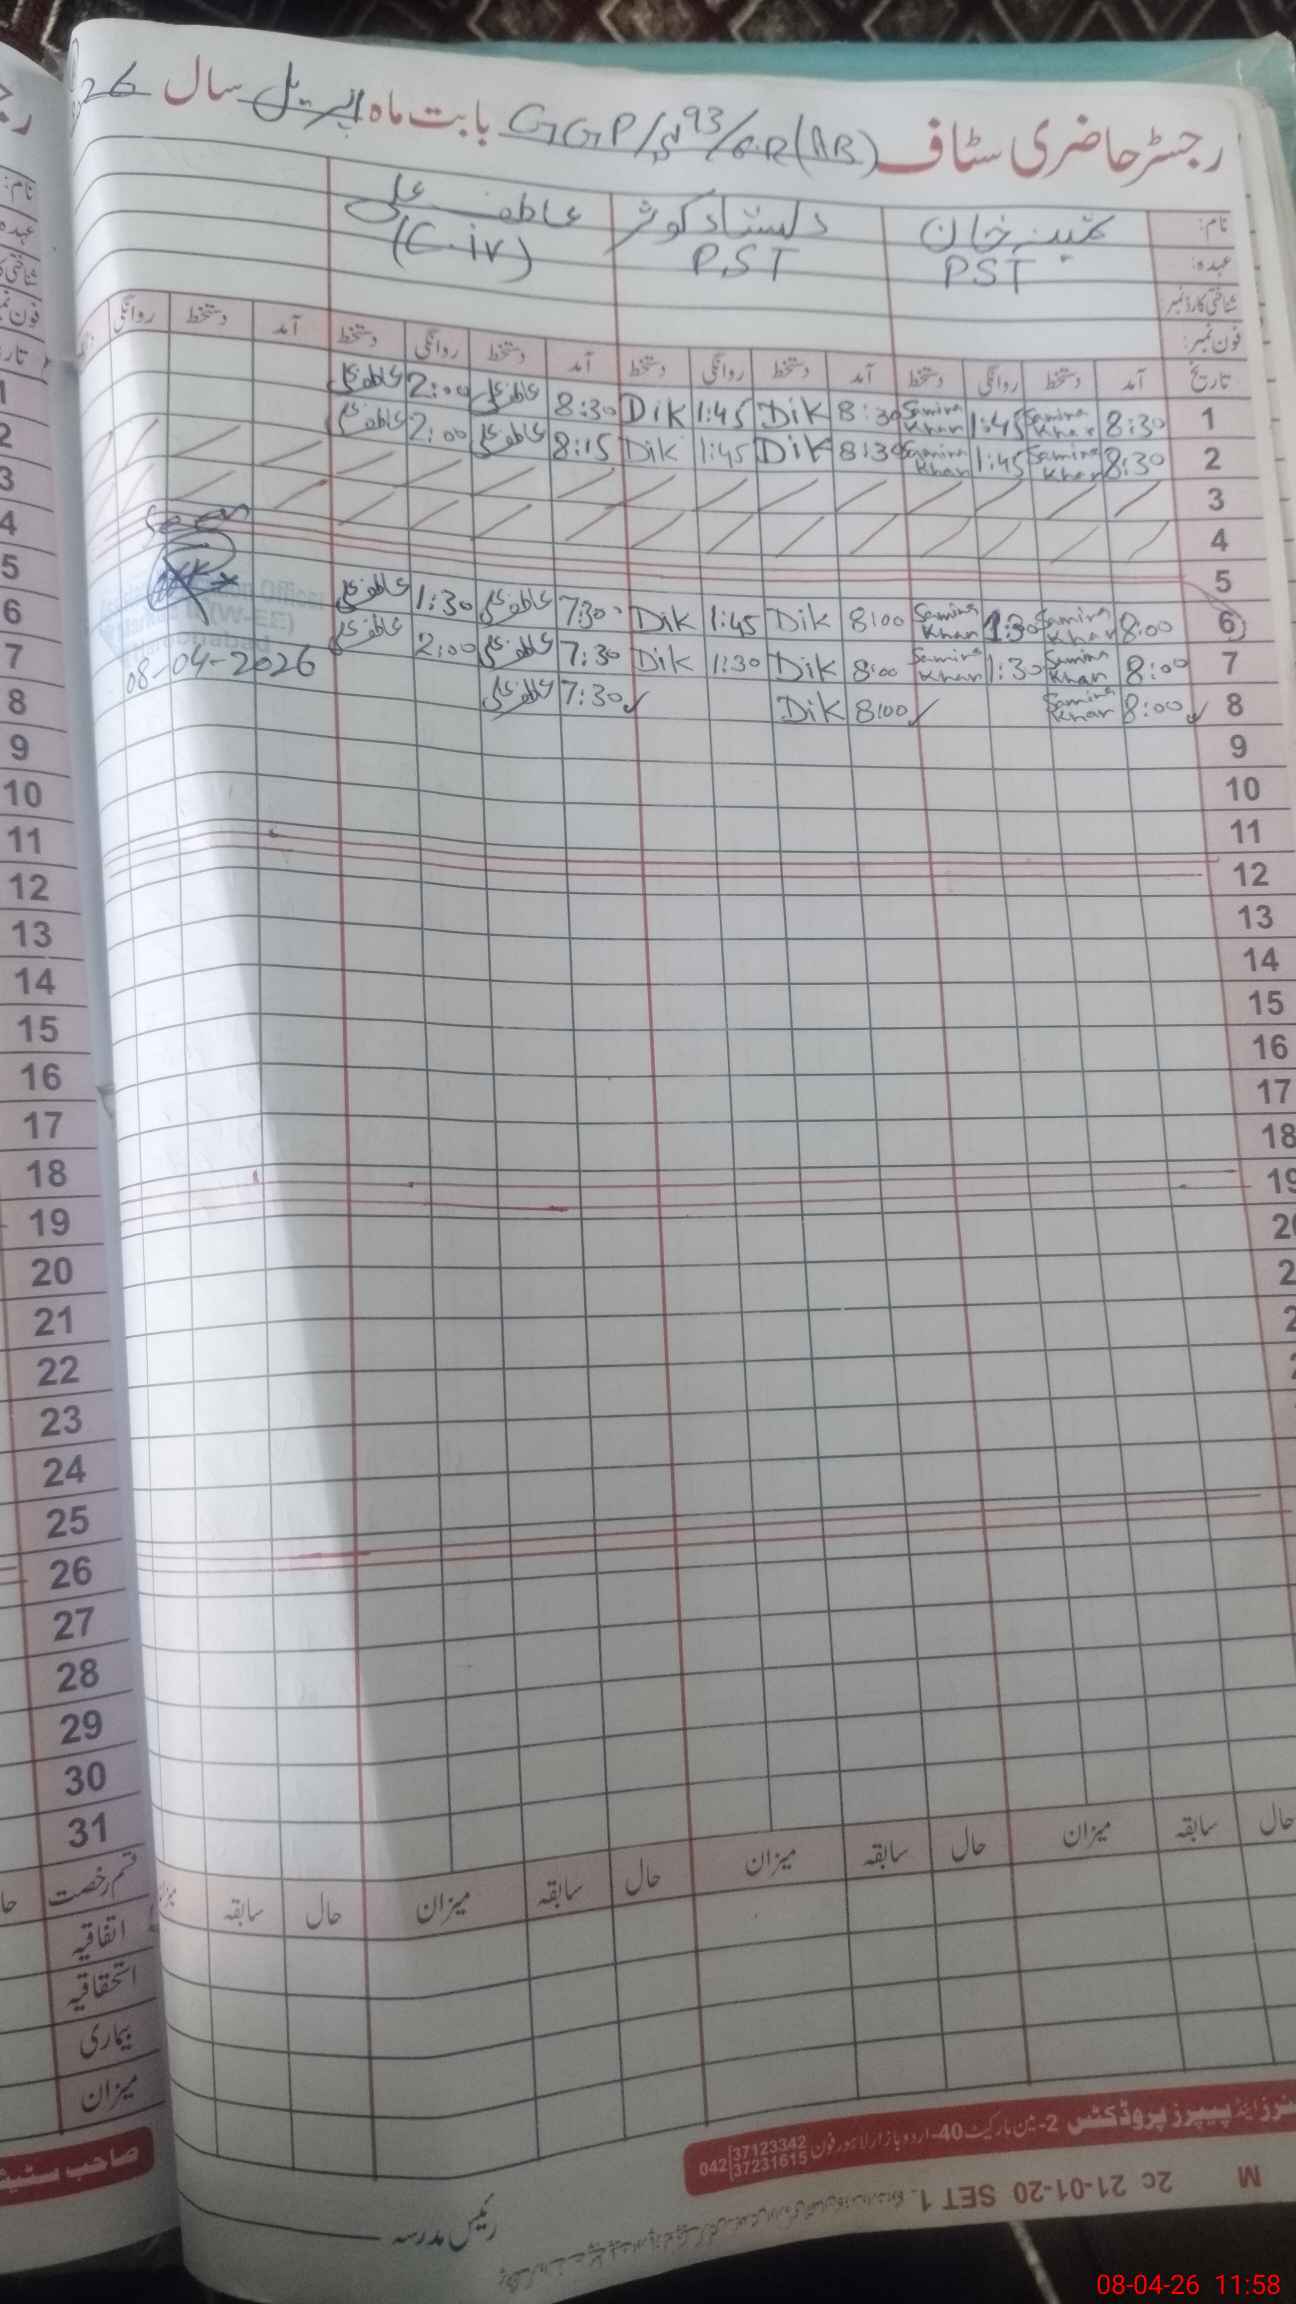 رجسٹر حاضری سٹاف GGP/S 93/6R(AB) بابت ماہ اپریل سال 26
نام: ثمینہ خان دلشاد کوثر عاطف علی
عہدہ: PST PST (C-iv)
شناختی کارڈ نمبر:
فون نمبر:
تاریخ آمد دستخط روانگی دستخط آمد دستخط روانگی دستخط آمد دستخط روانگی دستخط آمد دستخط روانگی
1 8:30 Samina Khan 1:45 Samina Khan 8:30 Dik 1:45 Dik 8:30 عاطف علی 2:00 عاطف علی
2 8:30 Samina Khan 1:45 Samina Khan 8:30 Dik 1:45 Dik 8:15 عاطف علی 2:00 عاطف علی
3
4
5
6 8:00 Samina Khan 1:30 Samina Khan 8:00 Dik 1:45 Dik 7:30 عاطف علی 1:30 عاطف علی
7 8:00 Samina Khan 1:30 Samina Khan 8:00 Dik 1:30 Dik 7:30 عاطف علی 2:00 عاطف علی
8 8:00 Samina Khan 8:00 Dik 7:30 عاطف علی
Seen
Officer
(W-EE)
08-04-2026
9
10
11
12
13
14
15
16
17
18
19
حال سابقہ میزان حال سابقہ میزان حال سابقہ میزان حال سابقہ
نام:
عہدہ
1
2
3
4
5
6
7
8
9
10
11
12
13
14
15
16
17
18
19
20
21
22
23
24
25
26
27
28
29
30
31
قسم رخصت
اتفاقیہ
استحقاقیہ
بیماری
میزان
صاحب
اینڈ پیپرز پروڈکٹس 2-مین مارکیٹ 40-اردو بازار لاہور فون 042 37123342 37231615
M 2c 21-01-20 SET 1
رئیس مدرسہ
08-04-26 11:58